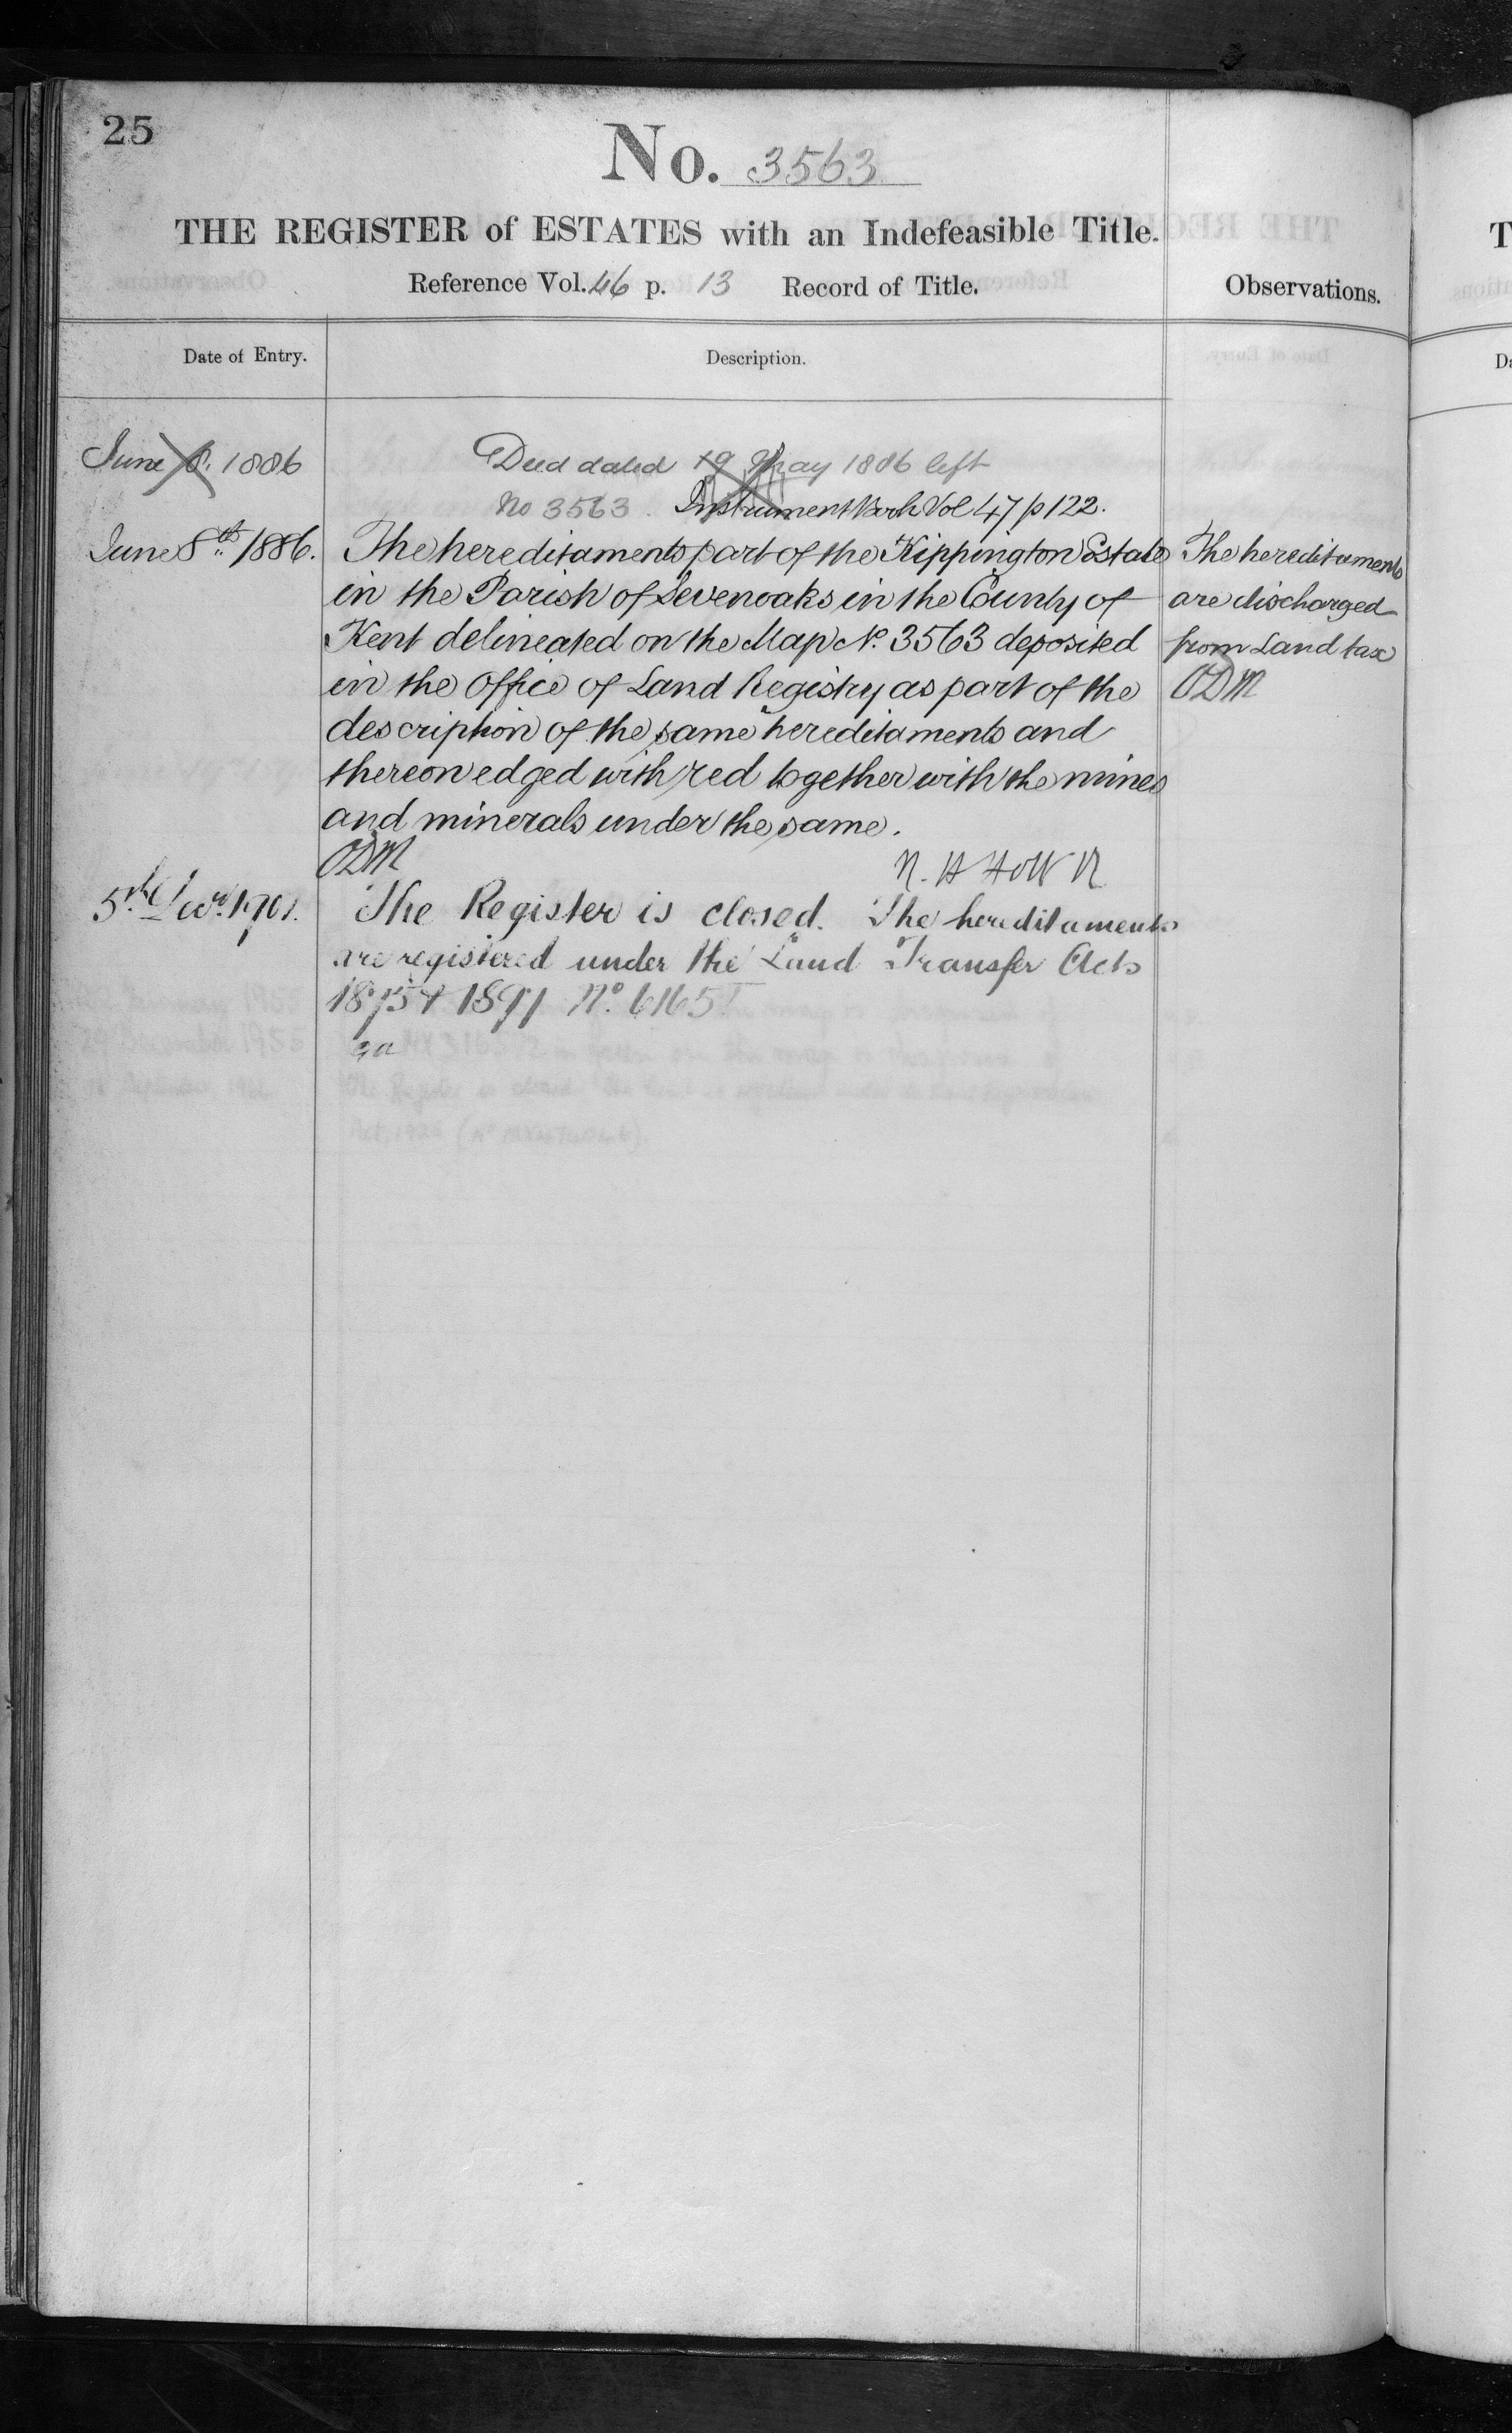 25
No. 3563
THE REGISTER of ESTATES with an Indefeasible Title.
Reference Vol. 46 p. 13 Record of Title.
Observations.
Date of Entry.
Description.
June 8. 1886
Deed dated 19 May 1886 left
No 3563. Instrument Book Vol 47 p 122.
June 8th 1886.
The hereditaments part of the Kippington Estate
in the Parish of Sevenoaks in the County of
Kent delineated on the Map No. 3563 deposited
in the Office of Land Registry as part of the
description of the same hereditaments and
thereon edged with red together with the mines
and minerals under the same.
ODM
The hereditaments
are discharged
from Land tax
ODM
5th Decr. 1901.
The Register is closed. The hereditaments
are registered under the Land Transfer Acts
1875 & 1897 No. 6165